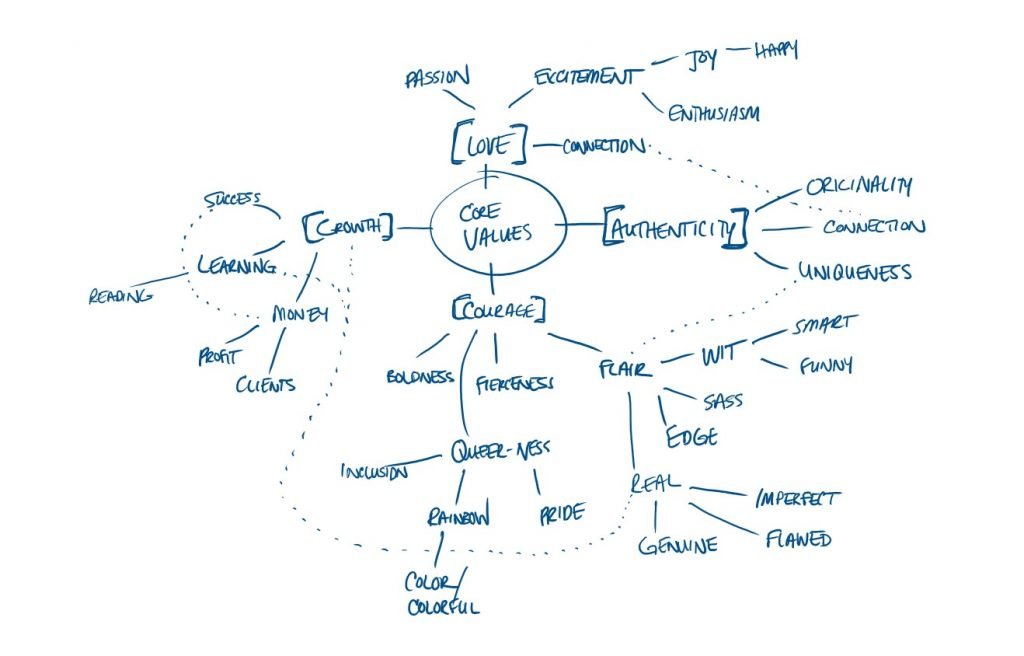 PASSION
EXCITEMENT
JOY
HAPPY
ENTHUSIASM
[LOVE]
CONNECTION
ORIGINALITY
SUCCESS
[GROWTH]
CORE
VALUES
[AUTHENTICITY]
CONNECTION
LEARNING
UNIQUENESS
READING
MONEY
[COURAGE]
PROFIT
CLIENTS
BOLDNESS
FIERCENESS
FLAIR
WIT
SMART
FUNNY
SASS
EDGE
QUEER-NESS
INCLUSION
RAINBOW
PRIDE
REAL
IMPERFECT
GENUINE
FLAWED
COLOR/
COLORFUL